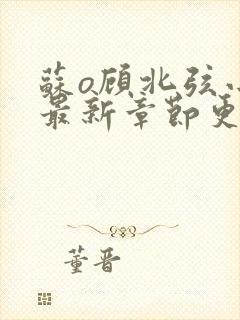 蘇o顾北弦小
最新章節更
董晋